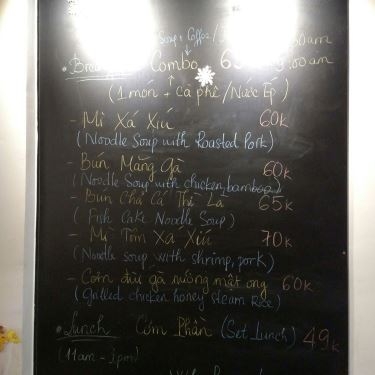 Soup + Coffee /
Combo
(1 món + Cà phê / Nước Ép)
- Mì Xá Xíu 60K
(Noodle Soup with Roasted Pork)
- Bún Măng Gà 60K
(Noodle Soup with chicken, bamboo)
- Bún Chả Cá Thì Là 65K
(Fish Cake Noodle Soup)
- Mì Tôm Xá Xíu 70K
(Noodle soup with shrimp, pork)
- Cơm đùi gà nướng mật ong 60K
(Grilled chicken honey steam Rice)
• Lunch Cơm Phần (Set Lunch) 49K
(11am - 3pm)